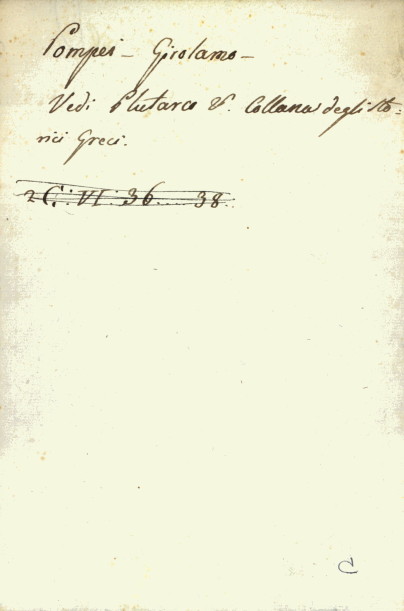 Pompei - Girolamo -
Vedi Plutarco V. Collana degli Sto=
rici Greci.
2 C. VI. 36.... 38.
C